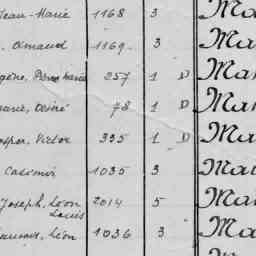 Jean-Marie 1168 3 Ma
. Arnaud 1169 3 Ma
Pierre Marie 257 1 D Mar
Désiré 78 1 D Mar
Victor 335 1 D Ma
Casimir 1035 3 Mar
Joseph, Léon 2014 5 Ma
Louis
Léon 1036 3 Ma